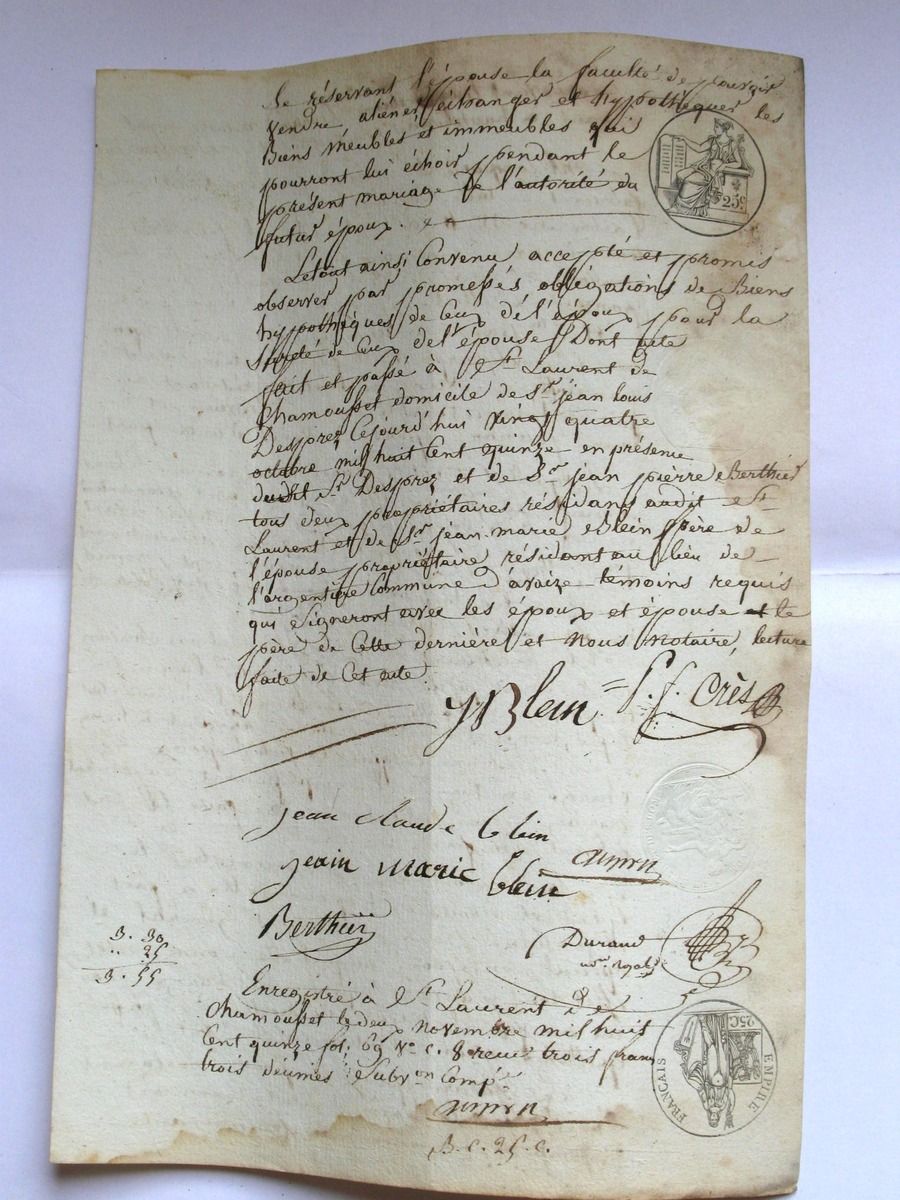 se réservant l'épouse la faculté de pouvoir
vendre aliéner échanger et hypothéquer les
Biens meubles et immeubles qui
pourront lui échoir pendant le
présent mariage de l'autorité du
futur époux.
25C
Le tout ainsi Convenu accepté et promis
observer par promesses obligations de Biens
hypothèques de Ceux de l'époux pour la
Sureté de Ceux de l'épouse Dont acte
fait et passé à St Laurent de
Chamousset domicile de Sr jean louis
Desprez Cejourd'hui vingt quatre
octobre mil huit Cent quinze en présence
dudit Sr Desprez et de Sr jean pierre Berthier
tous deux propriétaires résidans audit St
Laurent et de Sr jean-marie Blein père de
l'épouse propriétaire résidant au lieu de
l'argentière Commune d'avaize témoins requis
qui Signeront avec les epoux et épouse et le
père de Cette dernière et Nous Notaire, lecture
faite de Cet acte.
Blein = p. f. Crès
jean claude blein
jean marie blein
Berthier
Durand
nore royal
3. 30
.. 25
3. 55
Enregistré à St Laurent de
Chamousset le deux novembre mil huit
Cent quinze fol. 69 Vo C. 8 reçu trois franc
trois décimes Subvon Compse
B. C. 25. C.
25C
EMPIRE
FRANCAIS